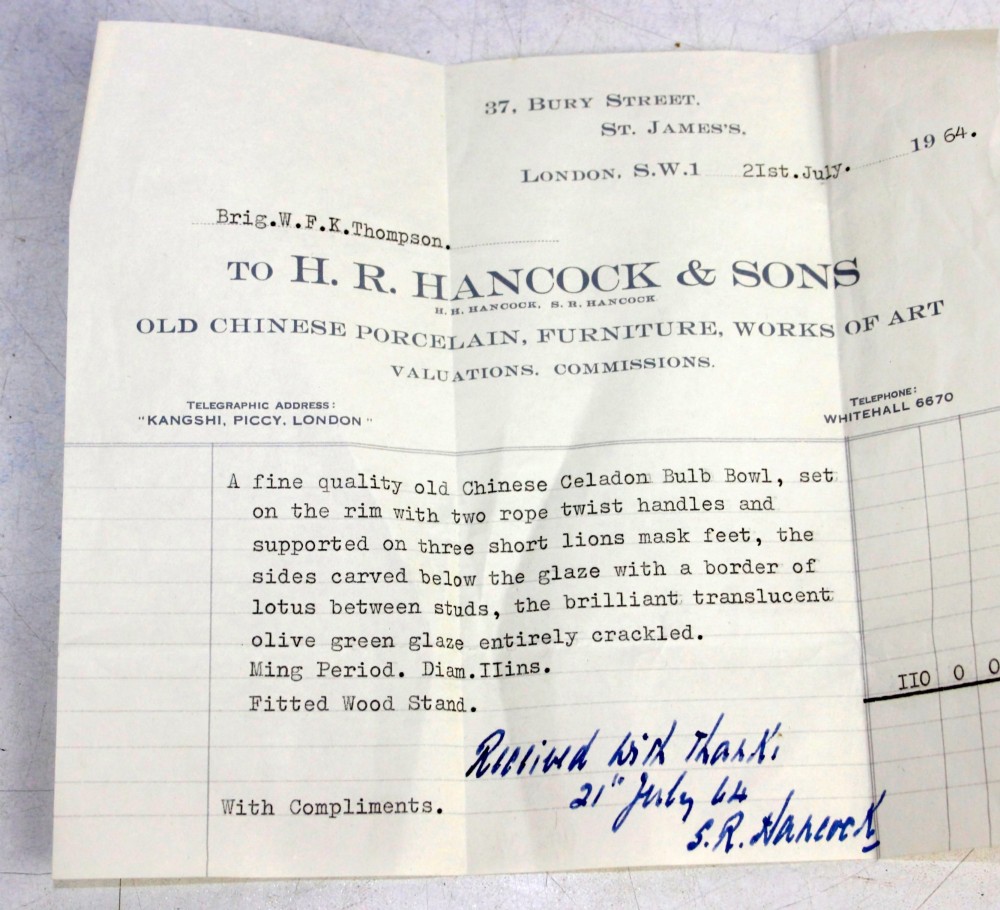 37, Bury Street,
St. James's,
London, S.W.1 2Ist.July. 19 64.
Brig.W.F.K.Thompson.
TO H. R. HANCOCK & SONS
H. H. HANCOCK. S. R. HANCOCK
OLD CHINESE PORCELAIN, FURNITURE, WORKS OF ART
VALUATIONS. COMMISSIONS.
Telegraphic Address: Telephone:
"KANGSHI, PICCY, LONDON" WHITEHALL 6670
A fine quality old Chinese Celadon Bulb Bowl, set
on the rim with two rope twist handles and
supported on three short lions mask feet, the
sides carved below the glaze with a border of
lotus between studs, the brilliant translucent
olive green glaze entirely crackled.
Ming Period. Diam.IIins.
Fitted Wood Stand. IIO 0 0
Received with thanks
21st July 64
With Compliments.
S.R. Hancock